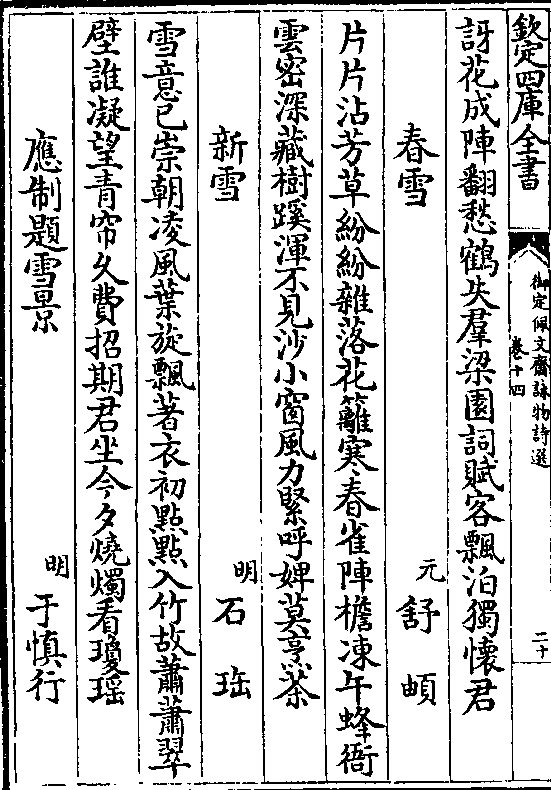 欽定四庫全書
御定佩文齋詠物詩選
卷十四
二十
訝花成陣翻愁鶴失羣梁園詞賦客飄泊獨懷君
春雪
元 舒頔
片片沾芳草紛紛雜落花籬寒春雀陣檐凍午蜂衙
雲密深藏樹蹊渾不見沙小窗風力緊呼婢莫烹茶
新雪
明 石珤
雪意已崇朝凌風葉旋飄著衣初點點入竹故蕭蕭翠
壁誰凝望青帘久費招期君坐今夕燒燭看瓊瑤
應制題雪景
明 于慎行